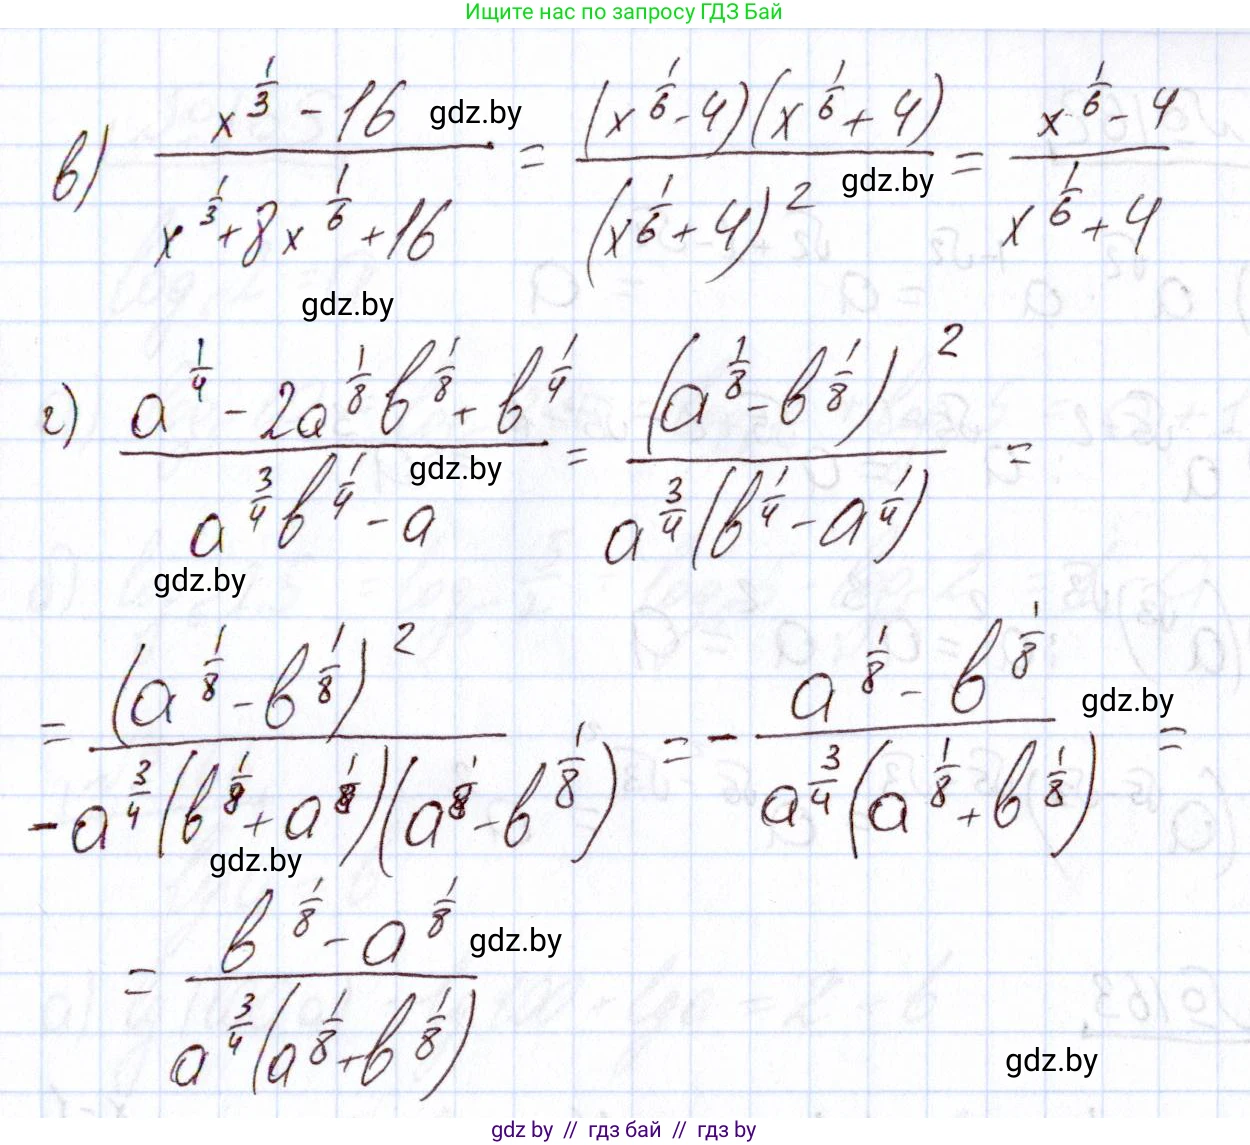 Ищите нас по запросу ГДЗ Бай
в) \frac{x^{\frac{1}{3}} - 16}{x^{\frac{1}{3}} + 8x^{\frac{1}{6}} + 16} = \frac{(x^{\frac{1}{6}} - 4)(x^{\frac{1}{6}} + 4)}{(x^{\frac{1}{6}} + 4)^2} = \frac{x^{\frac{1}{6}} - 4}{x^{\frac{1}{6}} + 4}
gdz.by
gdz.by
gdz.by
г) \frac{a^{\frac{1}{4}} - 2a^{\frac{1}{8}}b^{\frac{1}{8}} + b^{\frac{1}{4}}}{a^{\frac{3}{4}}b^{\frac{1}{4}} - a} = \frac{(a^{\frac{1}{8}} - b^{\frac{1}{8}})^2}{a^{\frac{3}{4}}(b^{\frac{1}{4}} - a^{\frac{1}{4}})} =
gdz.by
gdz.by
= \frac{(a^{\frac{1}{8}} - b^{\frac{1}{8}})^2}{-a^{\frac{3}{4}}(b^{\frac{1}{8}} + a^{\frac{1}{8}})(a^{\frac{1}{8}} - b^{\frac{1}{8}})} = -\frac{a^{\frac{1}{8}} - b^{\frac{1}{8}}}{a^{\frac{3}{4}}(a^{\frac{1}{8}} + b^{\frac{1}{8}})} =
gdz.by
gdz.by
= \frac{b^{\frac{1}{8}} - a^{\frac{1}{8}}}{a^{\frac{3}{4}}(a^{\frac{1}{8}} + b^{\frac{1}{8}})}
gdz.by
gdz.by
gdz by // гдз бай // гдз by